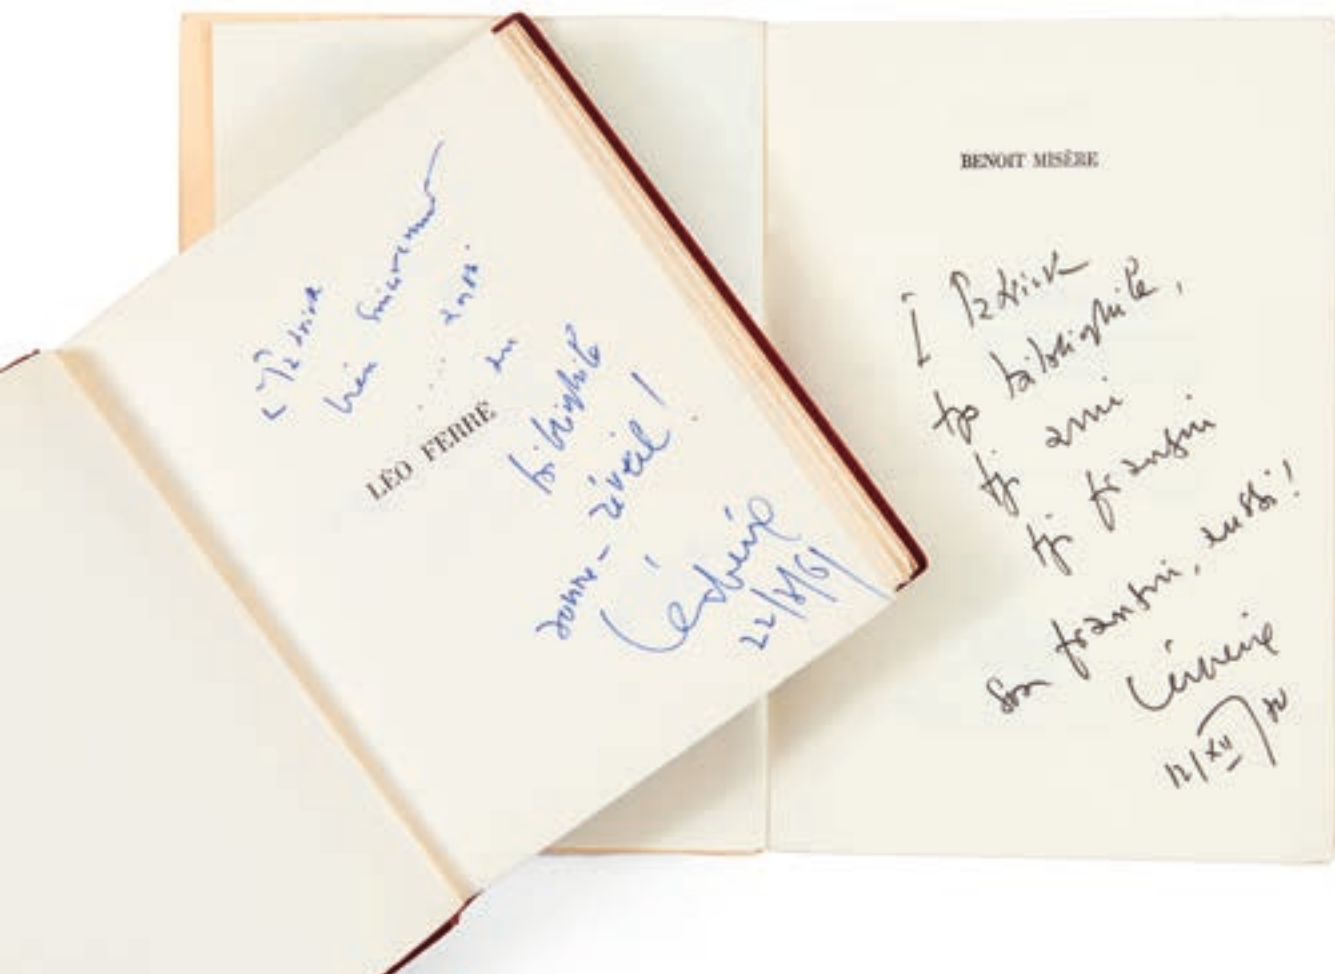 à Patrick
bien sincèrement
... aussi
du
LÉO FERRÉ
bibliophile
donne-réveil !
Léo Ferré
22/8/61
BENOIT MISÈRE
À Patrick
bibliophile,
ami
frangin
son frangin, aussi !
Léo Ferré
12/XII/70